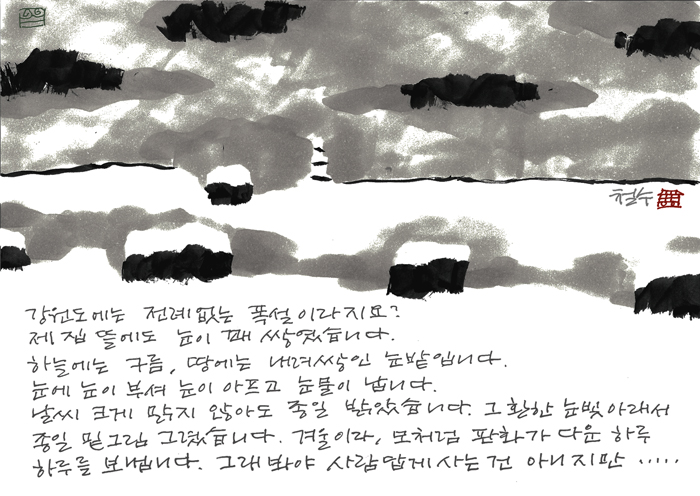 철수
강원도에는 전례없는 폭설이라지요?
제 집 뜰에도 눈이 꽤 쌓였습니다.
하늘에는 구름, 땅에는 내려쌓인 눈밭입니다.
눈에 눈이 부셔 눈이 아프고 눈물이 납니다.
날씨 크게 맑지 않아도 종일 밝았습니다. 그 환한 눈빛아래서
종일 밑그림 그렸습니다. 겨울이라, 모처럼 판화가 다운 하루
하루를 보냅니다. 그래 봐야 사람답게 사는 건 아니지만 .....